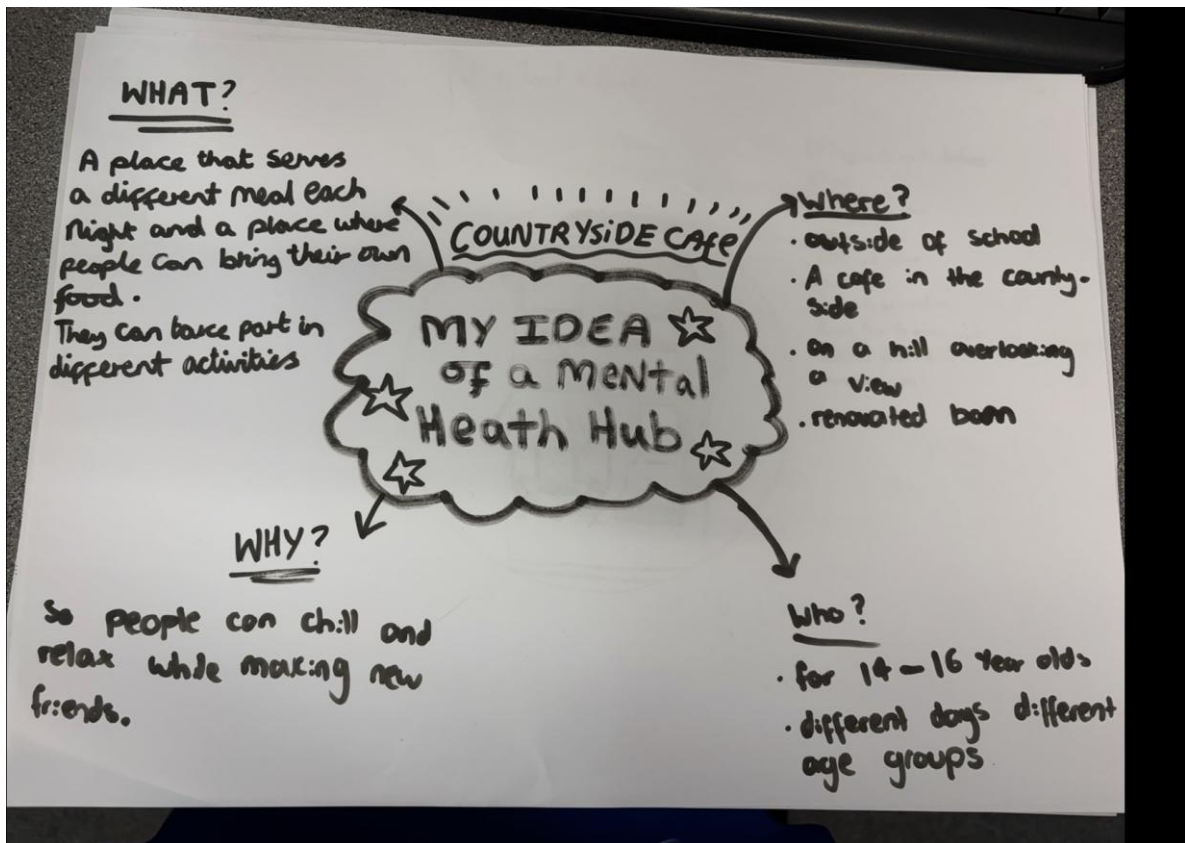 WHAT?
A place that serves
a different meal each
Night and a place where
people can bring their own
food.
They can take part in
different activities
COUNTRYSiDE CAfe
MY IDEA
of a MeNtal
Heath Hub
Where?
• outside of school
• A cafe in the county-
side
• on a hill overlooking
a view
• renovated barn
WHY?
So people can chill and
relax while making new
friends.
Who?
• for 14 – 16 Year olds
• different days different
age groups